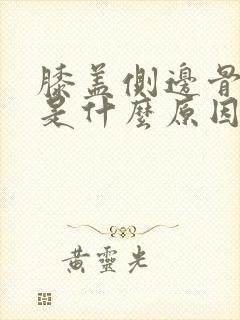 膝盖側邊骨
是什麼原因
黄靈光